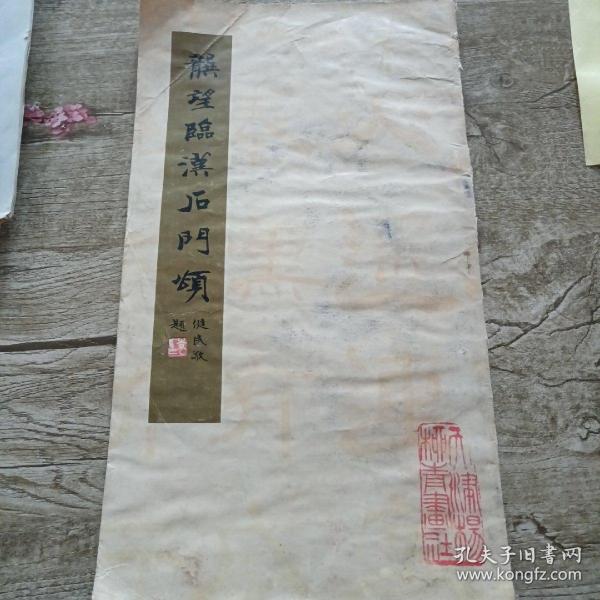 龔望臨漢石門頌
健民敬
題
天津楊
柳青畫社
孔夫子旧书网
www.kongfz.com